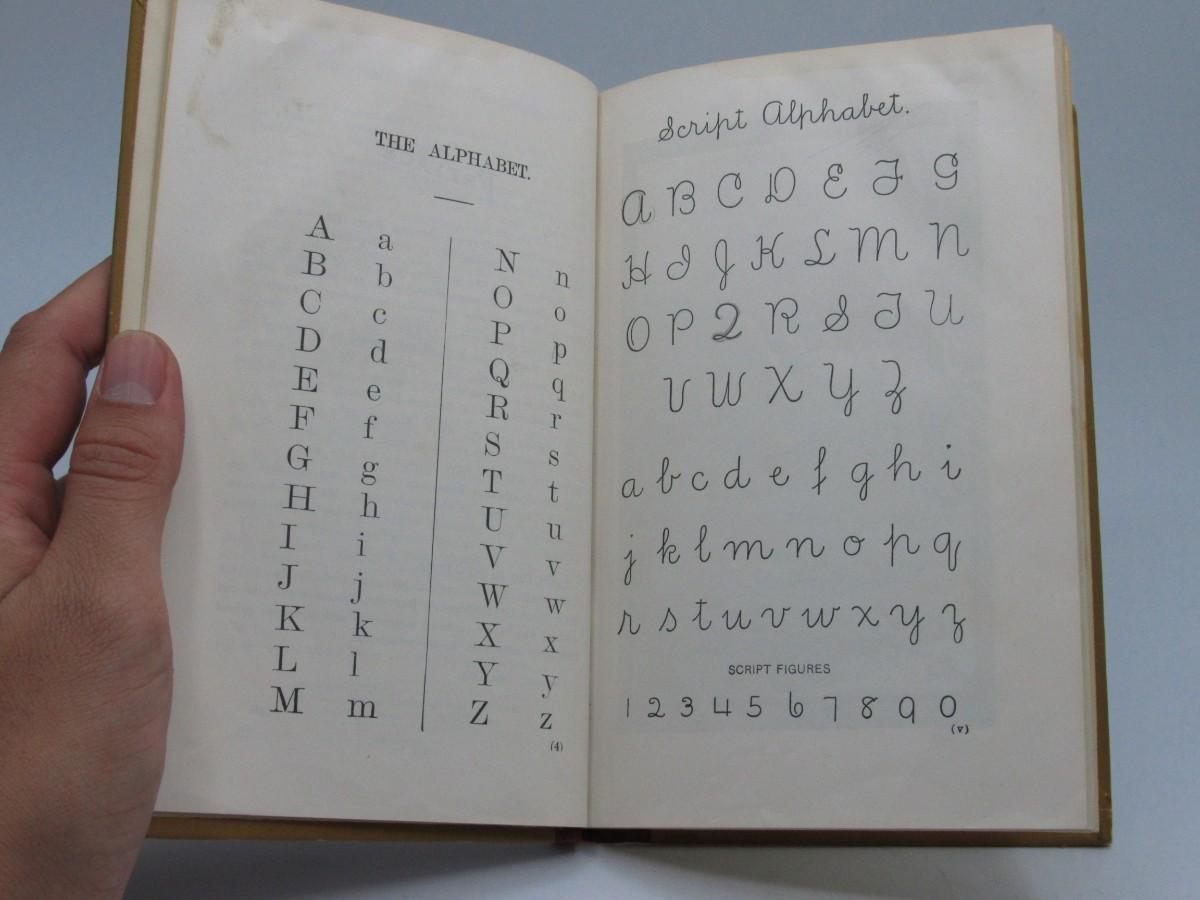 THE ALPHABET.
A a
B b
C c
D d
E e
F f
G g
H h
I i
J j
K k
L l
M m
N n
O o
P p
Q q
R r
S s
T t
U u
V v
W w
X x
Y y
Z z
(4)
Script Alphabet.
A B C D E F G
H I J K L M N
O P Q R S T U
V W X Y Z
a b c d e f g h i
j k l m n o p q
r s t u v w x y z
SCRIPT FIGURES
1 2 3 4 5 6 7 8 9 0
(v)